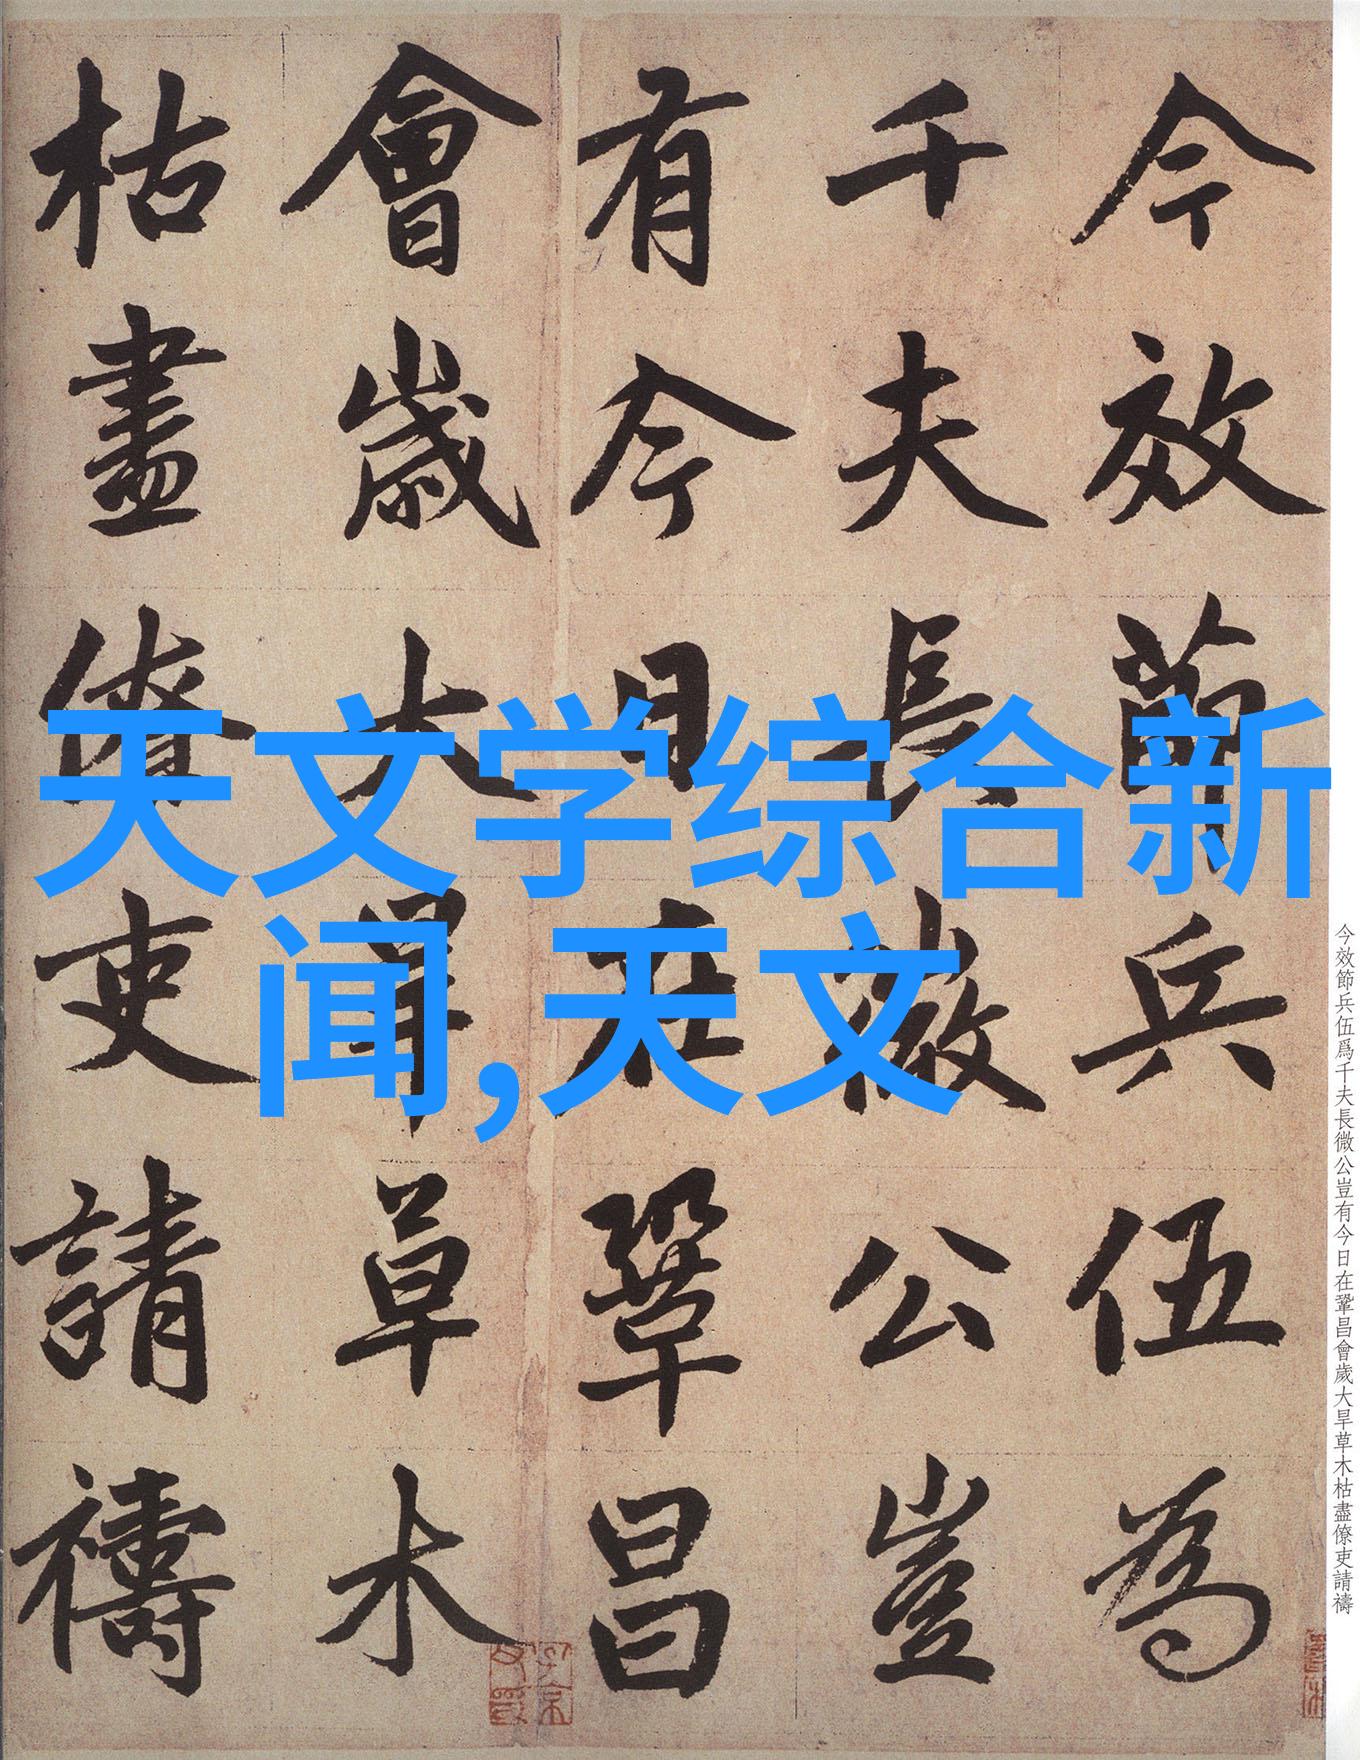 今效節兵伍為
千夫長微公豈
有今日在鞏昌
會歲大旱草木
枯盡僚吏請禱
天文学综合新
闻,天文
今效節兵伍爲千夫長微公豈有今日在鞏昌會歲大旱草木枯盡僚吏請禱